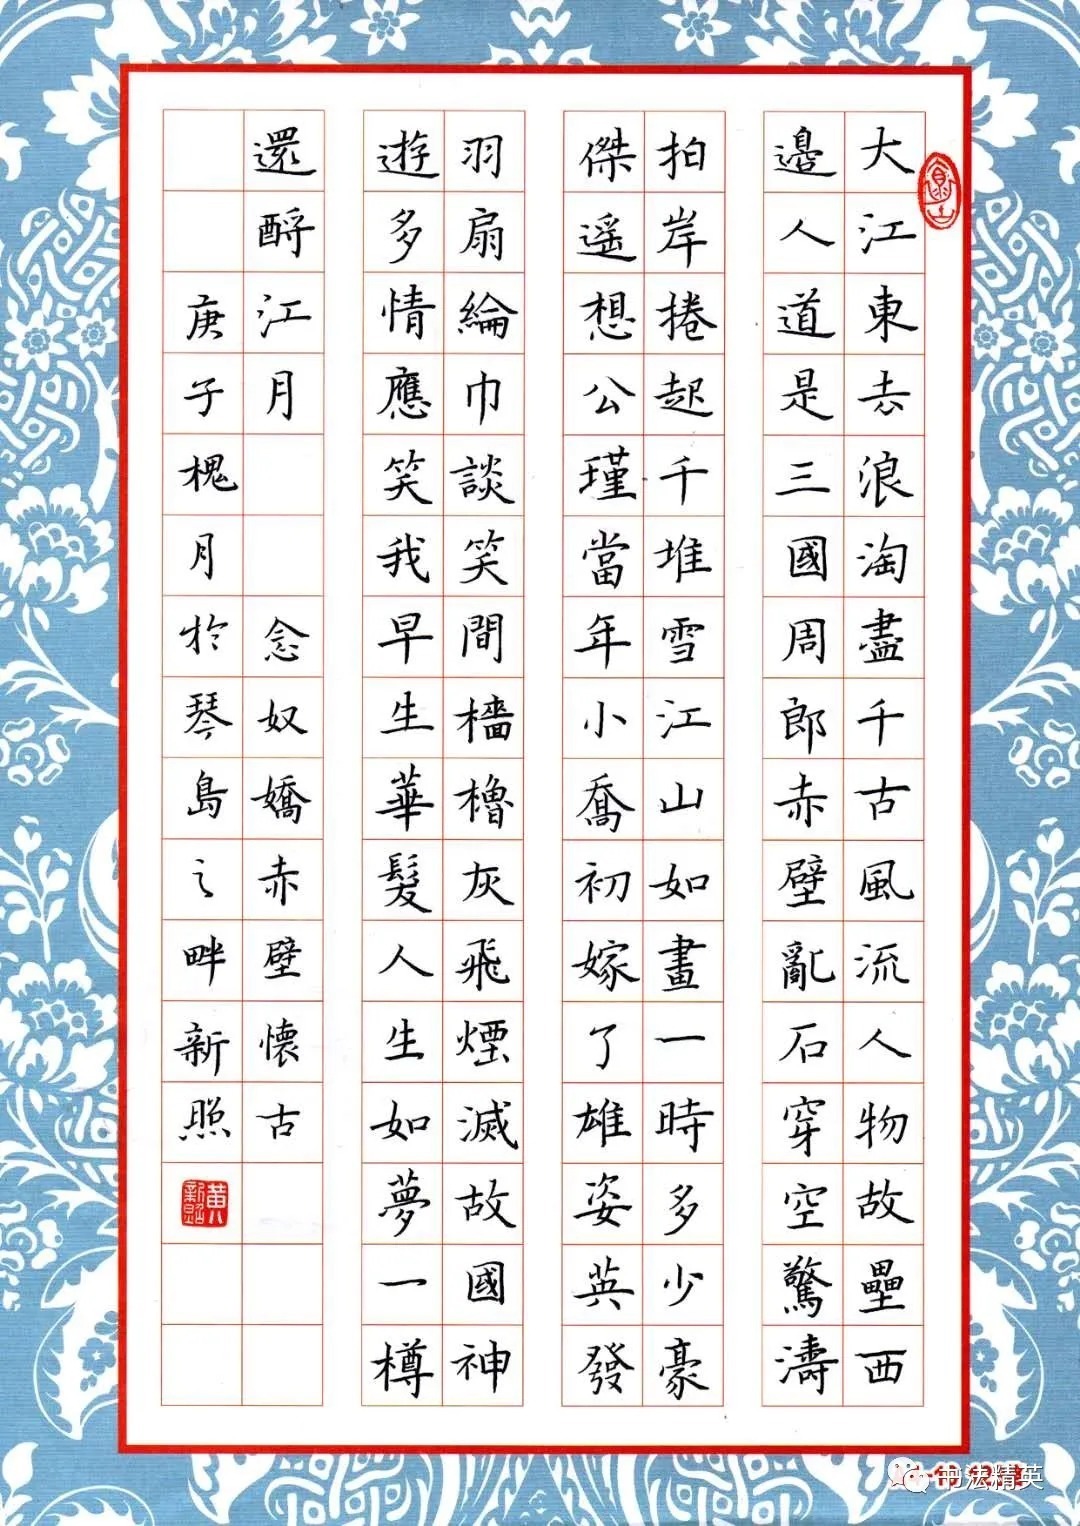 大江東去浪淘盡千古風流人物故壘西
邊人道是三國周郎赤壁亂石穿空驚濤
拍岸捲起千堆雪江山如畫一時多少豪
傑遥想公瑾當年小喬初嫁了雄姿英發
羽扇綸巾談笑間檣櫓灰飛煙滅故國神
遊多情應笑我早生華髮人生如夢一樽
還酹江月 念奴嬌赤壁懷古
庚子槐月於琴島之畔新照
书法精英